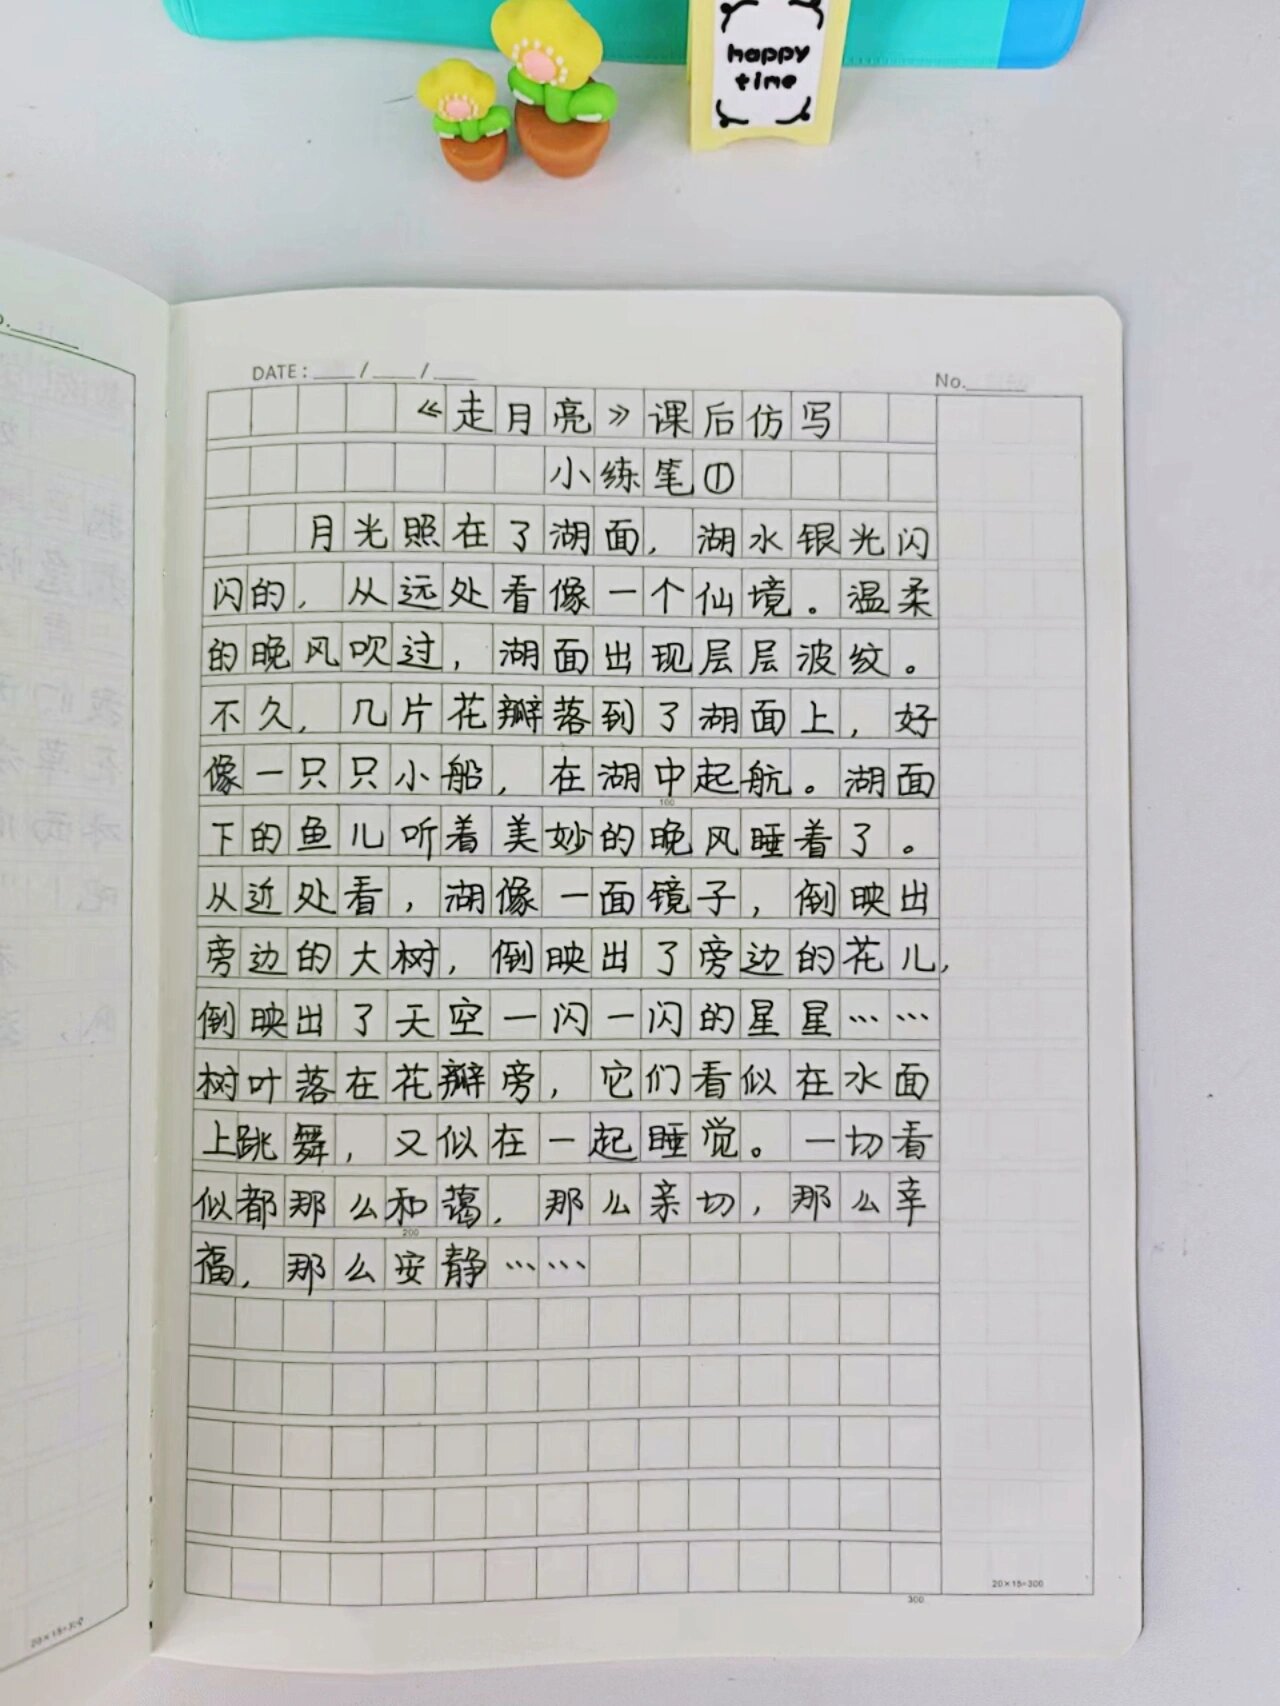 happy
time
DATE: ___ / ___ / ___
No.
《走月亮》课后仿写
小练笔①
月光照在了湖面，湖水银光闪
闪的，从远处看像一个仙境。温柔
的晚风吹过，湖面出现层层波纹。
不久，几片花瓣落到了湖面上，好
像一只只小船，在湖中起航。湖面
100
下的鱼儿听着美妙的晚风睡着了。
从近处看，湖像一面镜子，倒映出
旁边的大树，倒映出了旁边的花儿，
倒映出了天空一闪一闪的星星……
树叶落在花瓣旁，它们看似在水面
上跳舞，又似在一起睡觉。一切看
似都那么和蔼，那么亲切，那么幸
200
福，那么安静……
20×15=300
300
20×15=300